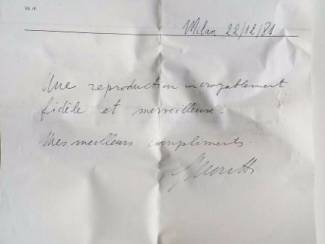 Milan 22/12/81
Une reproduction incroyablement
fidèle et merveilleuse.
Mes meilleurs compliments